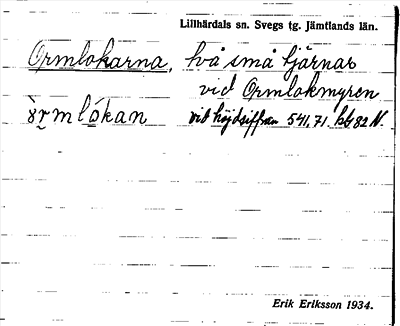 Lillhärdals sn. Svegs tg. Jämtlands län.
Ormlokarna, två små tjärnar
vid Ormlokmyren
vid höjdsiffran 541,71. kbl 82 N.
ò̀r̥mlókan
Erik Eriksson 1934.